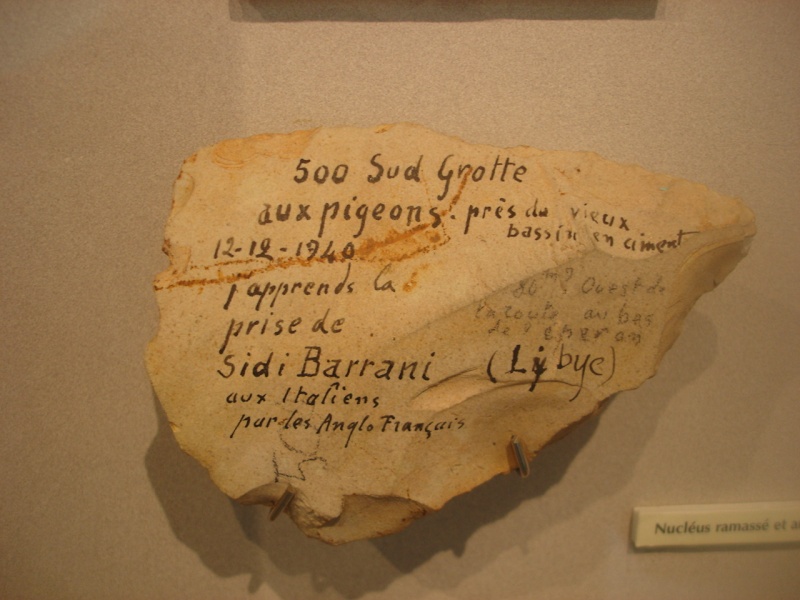 500 Sud Grotte
aux pigeons. près du vieux
bassin en ciment
12-12-1940
j'apprends la
prise de
Ouest de
la route au bas
de
Sidi Barrani (Libye)
aux Italiens
par des Anglo Français
Nucléus ramassé et